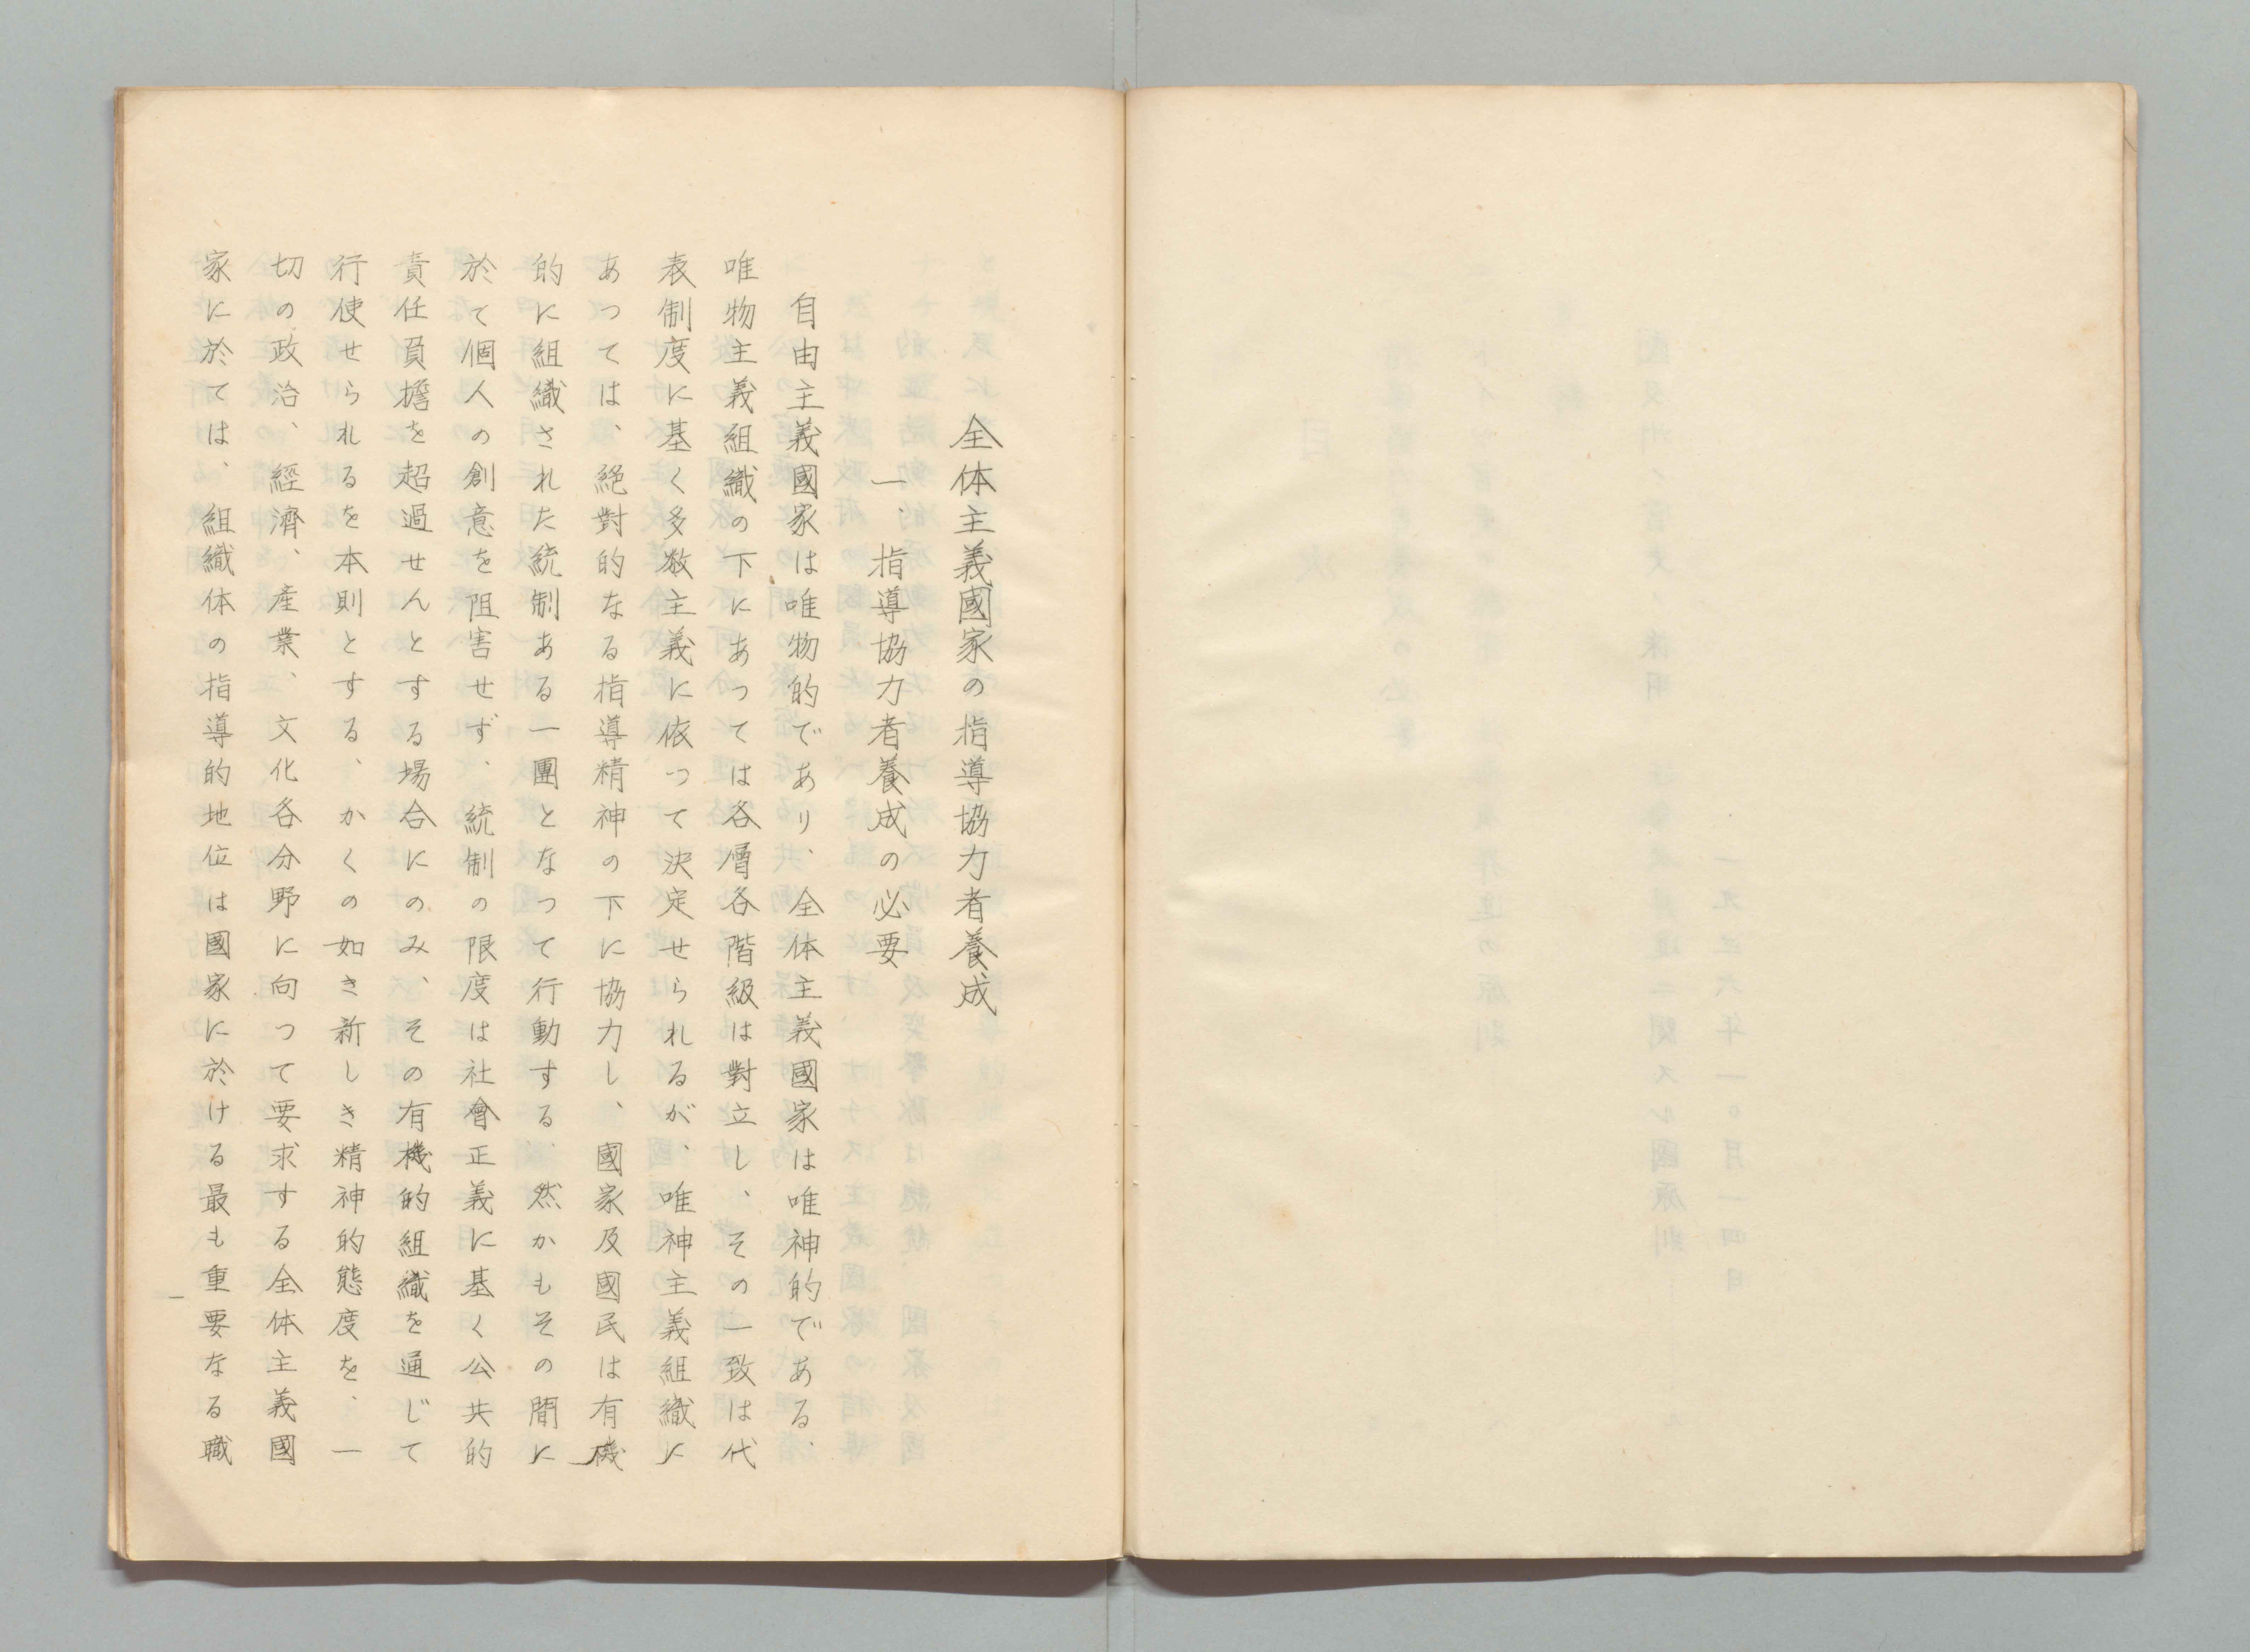 全体主義國家の指導協力者養成
一、指導協力者養成の必要
自由主義國家は唯物的であり、全体主義國家は唯神的である、
唯物主義組織の下にあっては各層各階級は對立し、その一致は代
表制度に基く多数主義に依って決定せられるが、唯神主義組織に
あっては、絶對的なる指導精神の下に協力し、國家及國民は有機
的に組織された統制ある一團となって行動する、然かもその間に
於て個人の創意を阻害せず、統制の限度は社會正義に基く公共的
責任負擔を超過せんとする場合にのみ、その有機的組織を通じて
行使せられるを本則とする、かくの如き新しき精神的態度を、一
切の政治、經濟、産業、文化各分野に向って要求する全体主義國
家に於ては、組織体の指導的地位は國家に於ける最も重要なる職
一